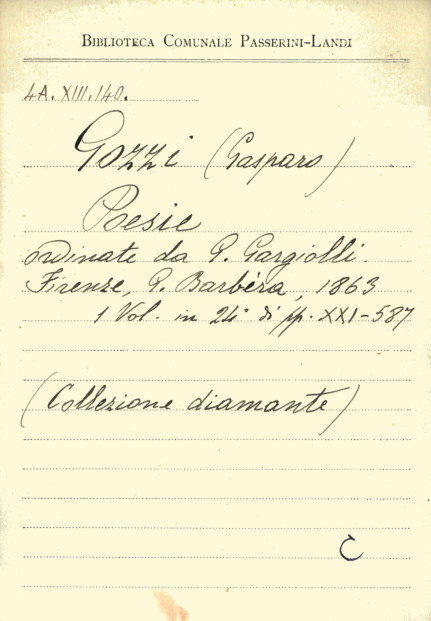 BIBLIOTECA COMUNALE PASSERINI-LANDI
4A. XIII. 140.
Gozzi (Gasparo)
Poesie
ordinate da G. Gargiolli.
Firenze, G. Barbèra, 1863
1 Vol. in 24° di pp. XXI-587
(Collezione diamante)
C